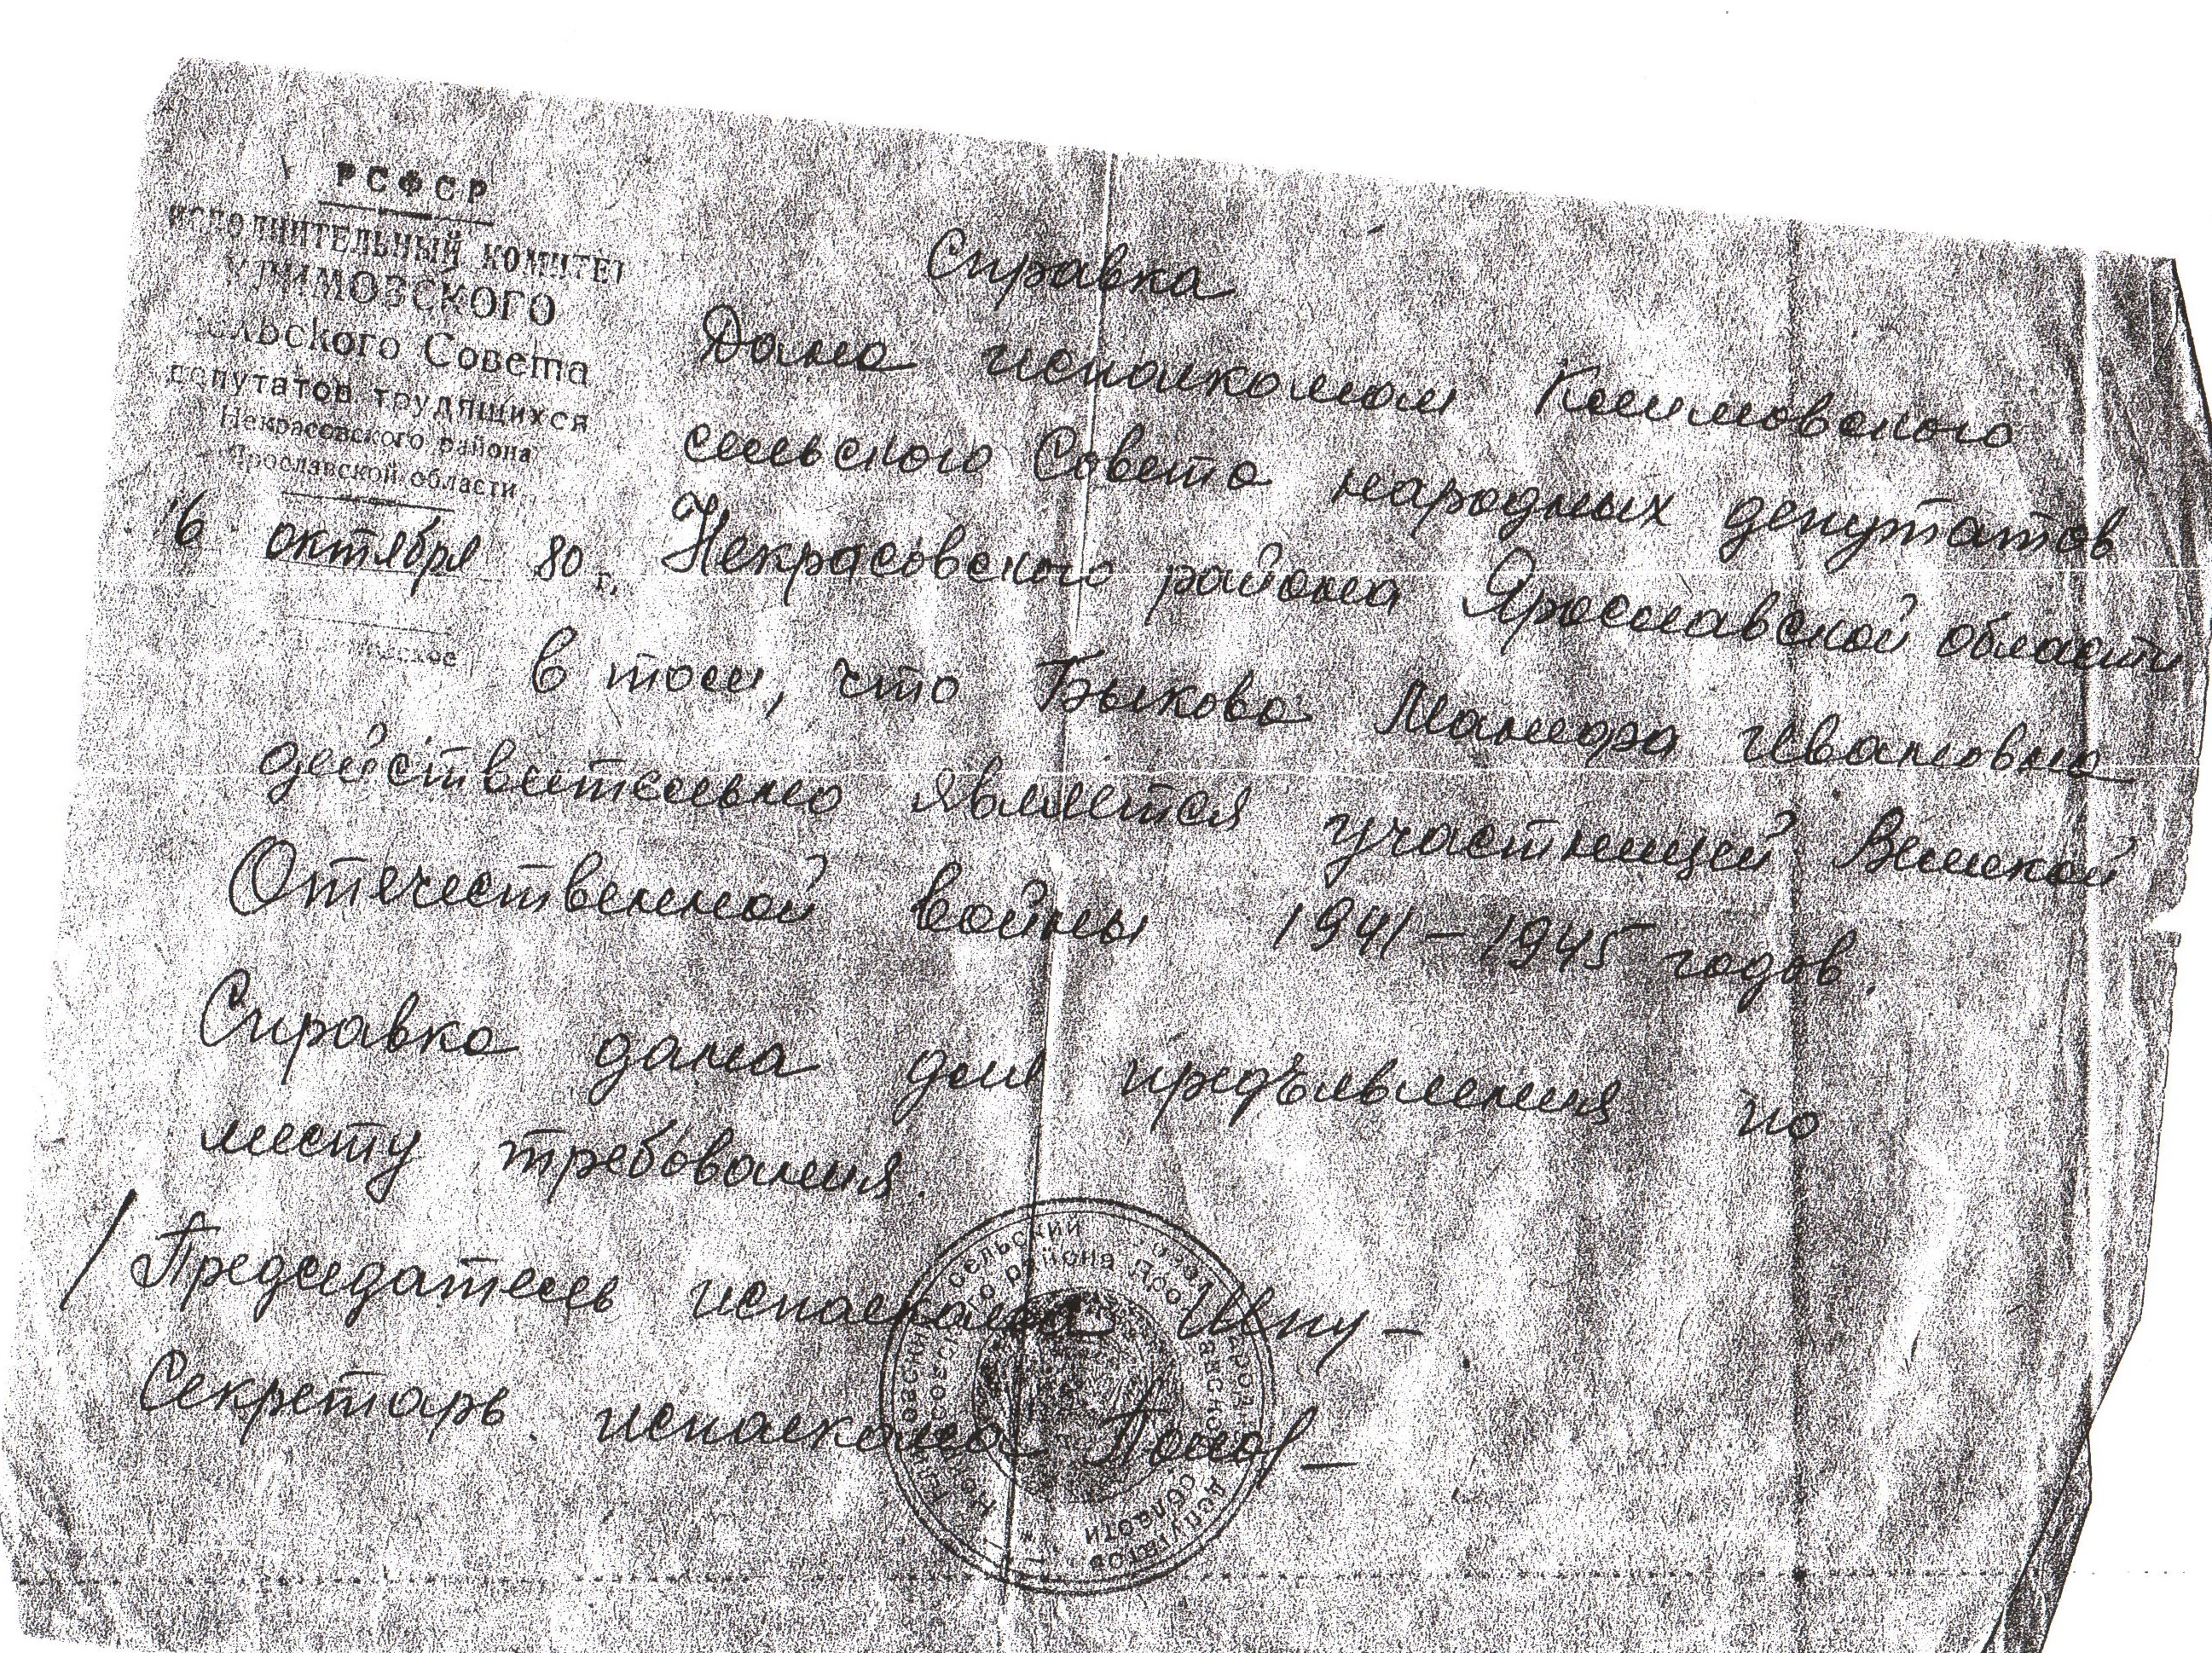 РСФСР
ИСПОЛНИТЕЛЬНЫЙ КОМИТЕТ
КЛИМОВСКОГО
сельского Совета
депутатов трудящихся
Некрасовского района
Ярославской области
16 октября 80 г.
Справка
Дана исполкомом Климовского
сельского Совета народных депутатов
Некрасовского района Ярославской области
в том, что Быкова Манефа Ивановна
действительно является участницей Великой
Отечественной войны 1941-1945 годов.
Справка дана для предъявления по
месту требования.
Председатель исполкома
Секретарь исполкома
сельский народных депутатов
района Ярославской области